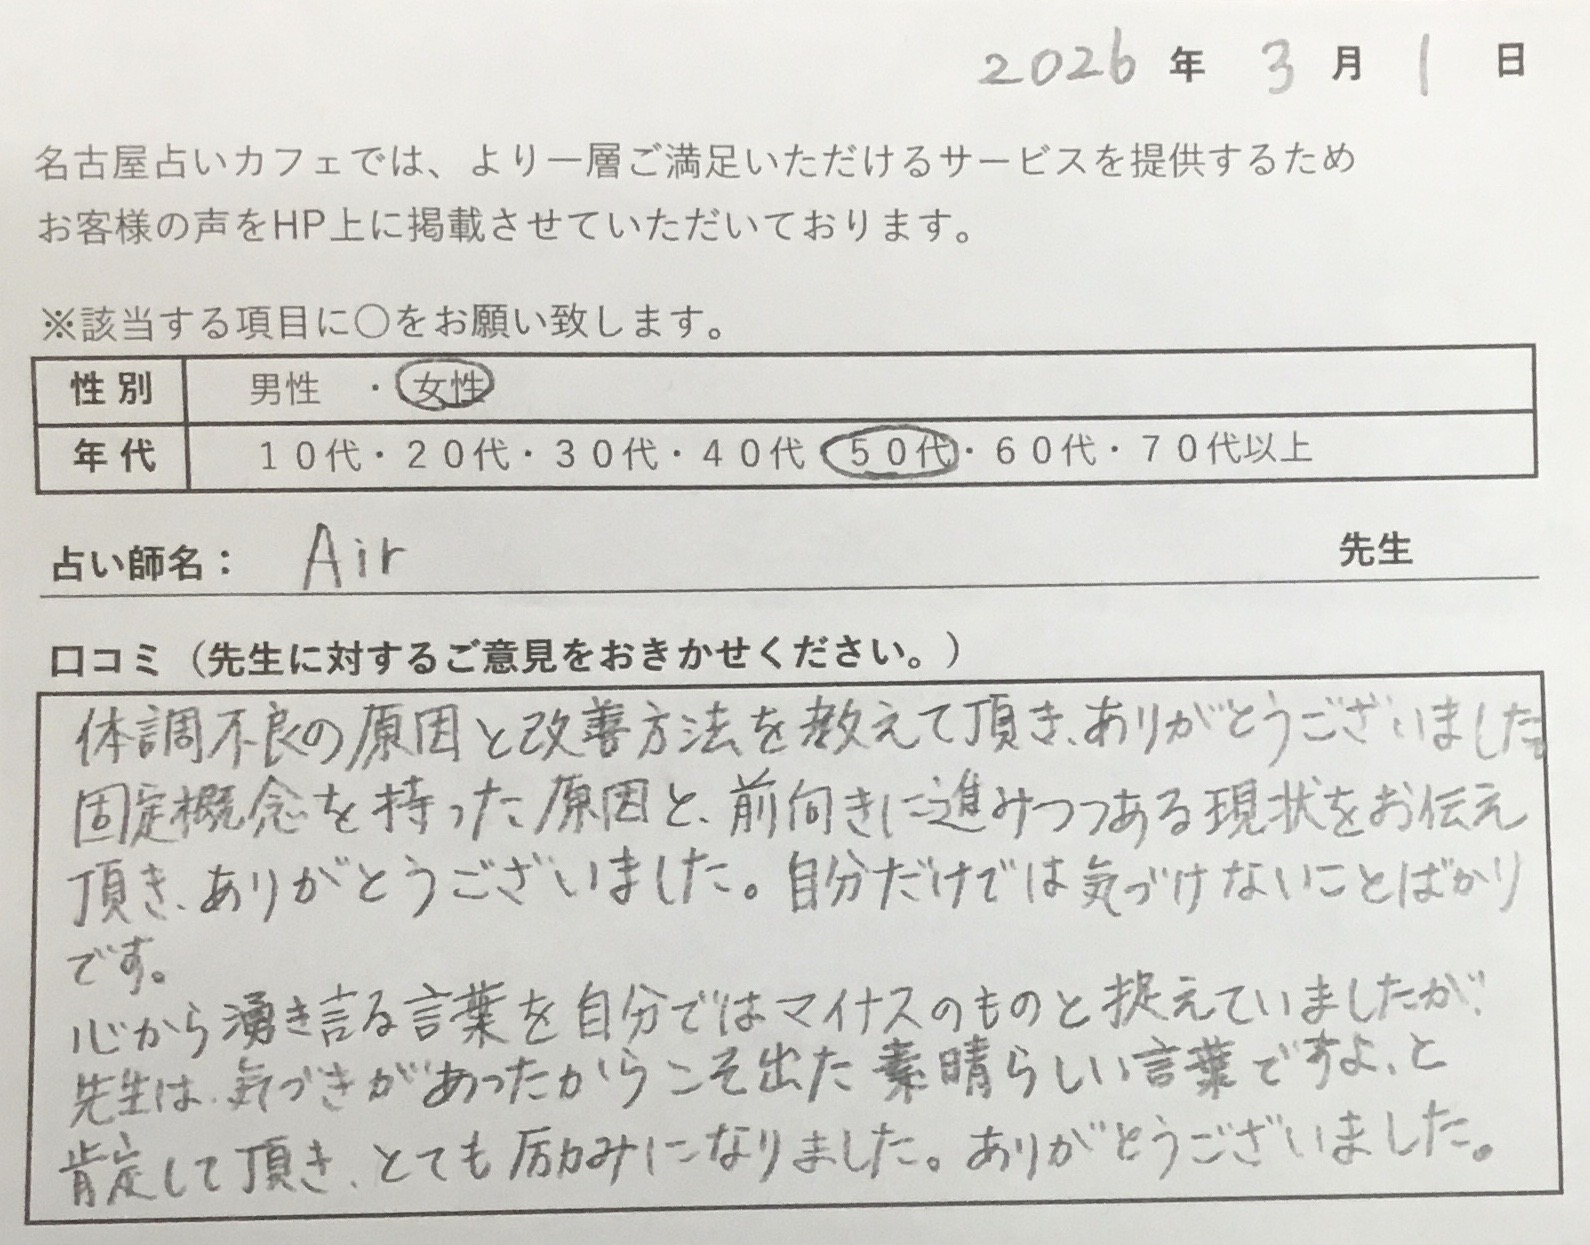 2026 年 3 月 1 日
名古屋占いカフェでは、より一層ご満足いただけるサービスを提供するため
お客様の声をHP上に掲載させていただいております。
※該当する項目に〇をお願い致します。
性別 男性 ・ 女性
年代 10代・20代・30代・40代 50代・60代・70代以上
占い師名： Air 先生
口コミ（先生に対するご意見をおきかせください。）
体調不良の原因と改善方法を教えて頂き、ありがとうございました。
固定概念を持った原因と、前向きに進みつつある現状をお伝え
頂き、ありがとうございました。自分だけでは気づけないことばかり
です。
心から湧き言る言葉を自分ではマイナスのものと捉えていましたが、
先生は、気づきがあったからこそ出た素晴らしい言葉ですよ、と
肯定して頂き、とても励みになりました。ありがとうございました。